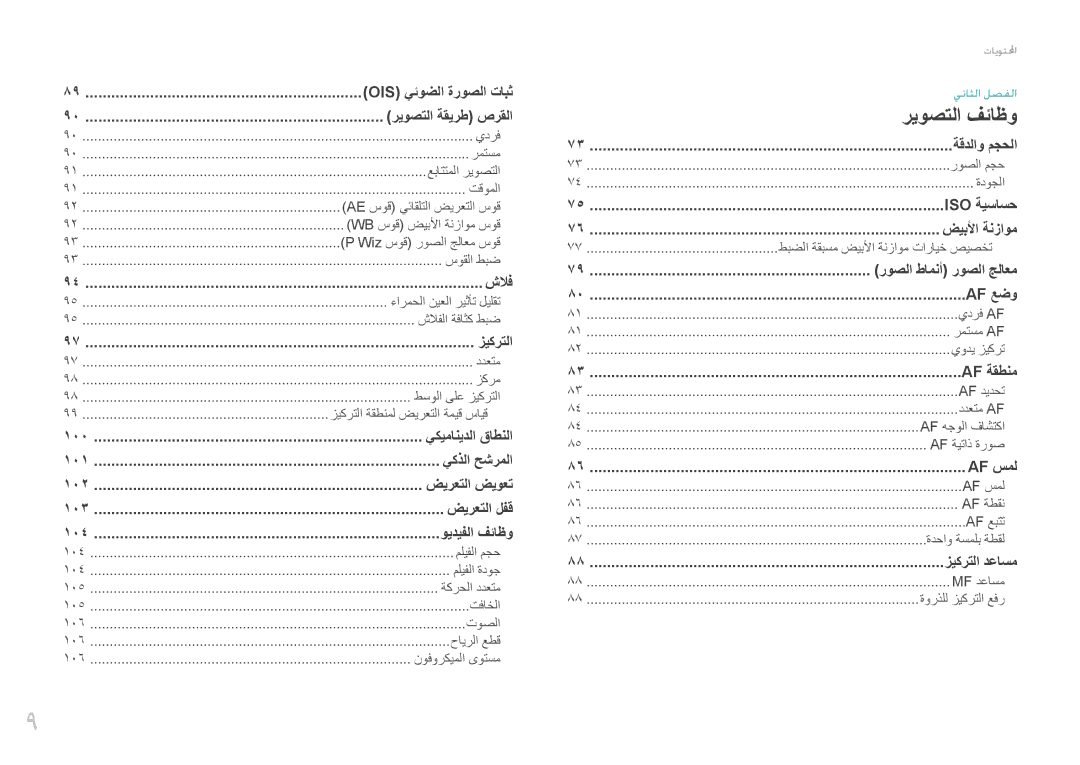 المحتويات
الفصل الثاني
وظائف التصوير
الحجم والدقة ٧٣
حجم الصور ٧٣
الجودة ٧٤
حساسية ISO ٧٥
موازنة الأبيض ٧٦
تخصيص خيارات موازنة الأبيض مسبقة الضبط ٧٧
معالج الصور (أنماط الصور) ٧٩
وضع AF ٨٠
AF فردي ٨١
AF مستمر ٨١
تركيز يدوي ٨٢
منطقة AF ٨٣
تحديد AF ٨٣
AF متعدد ٨٤
اكتشاف الوجه AF ٨٤
صورة ذاتية AF ٨٥
لمس AF ٨٦
لمس AF ٨٦
نقطة AF ٨٦
تتبع AF ٨٦
لقطة بلمسة واحدة ٨٧
مساعد التركيز ٨٨
مساعد MF ٨٨
رفع التركيز للذروة ٨٨
ثبات الصورة الضوئي (OIS) ٨٩
القرص (طريقة التصوير) ٩٠
فردي ٩٠
مستمر ٩٠
التصوير المتتابع ٩١
المؤقت ٩١
قوس التعريض التلقائي (قوس AE) ٩٢
قوس موازنة الأبيض (قوس WB) ٩٢
قوس معالج الصور (قوس P Wiz) ٩٣
ضبط القوس ٩٣
فلاش ٩٤
تقليل تأثير العين الحمراء ٩٥
ضبط كثافة الفلاش ٩٥
التركيز ٩٧
متعدد ٩٧
مركز ٩٨
التركيز على الوسط ٩٨
قياس قيمة التعريض لمنطقة التركيز ٩٩
النطاق الديناميكي ١٠٠
المرشح الذكي ١٠١
تعويض التعريض ١٠٢
قفل التعريض ١٠٣
وظائف الفيديو ١٠٤
حجم الفيلم ١٠٤
جودة الفيلم ١٠٤
متعدد الحركة ١٠٥
الخافت ١٠٥
الصوت ١٠٦
قطع الرياح ١٠٦
مستوى الميكروفون ١٠٦
٩